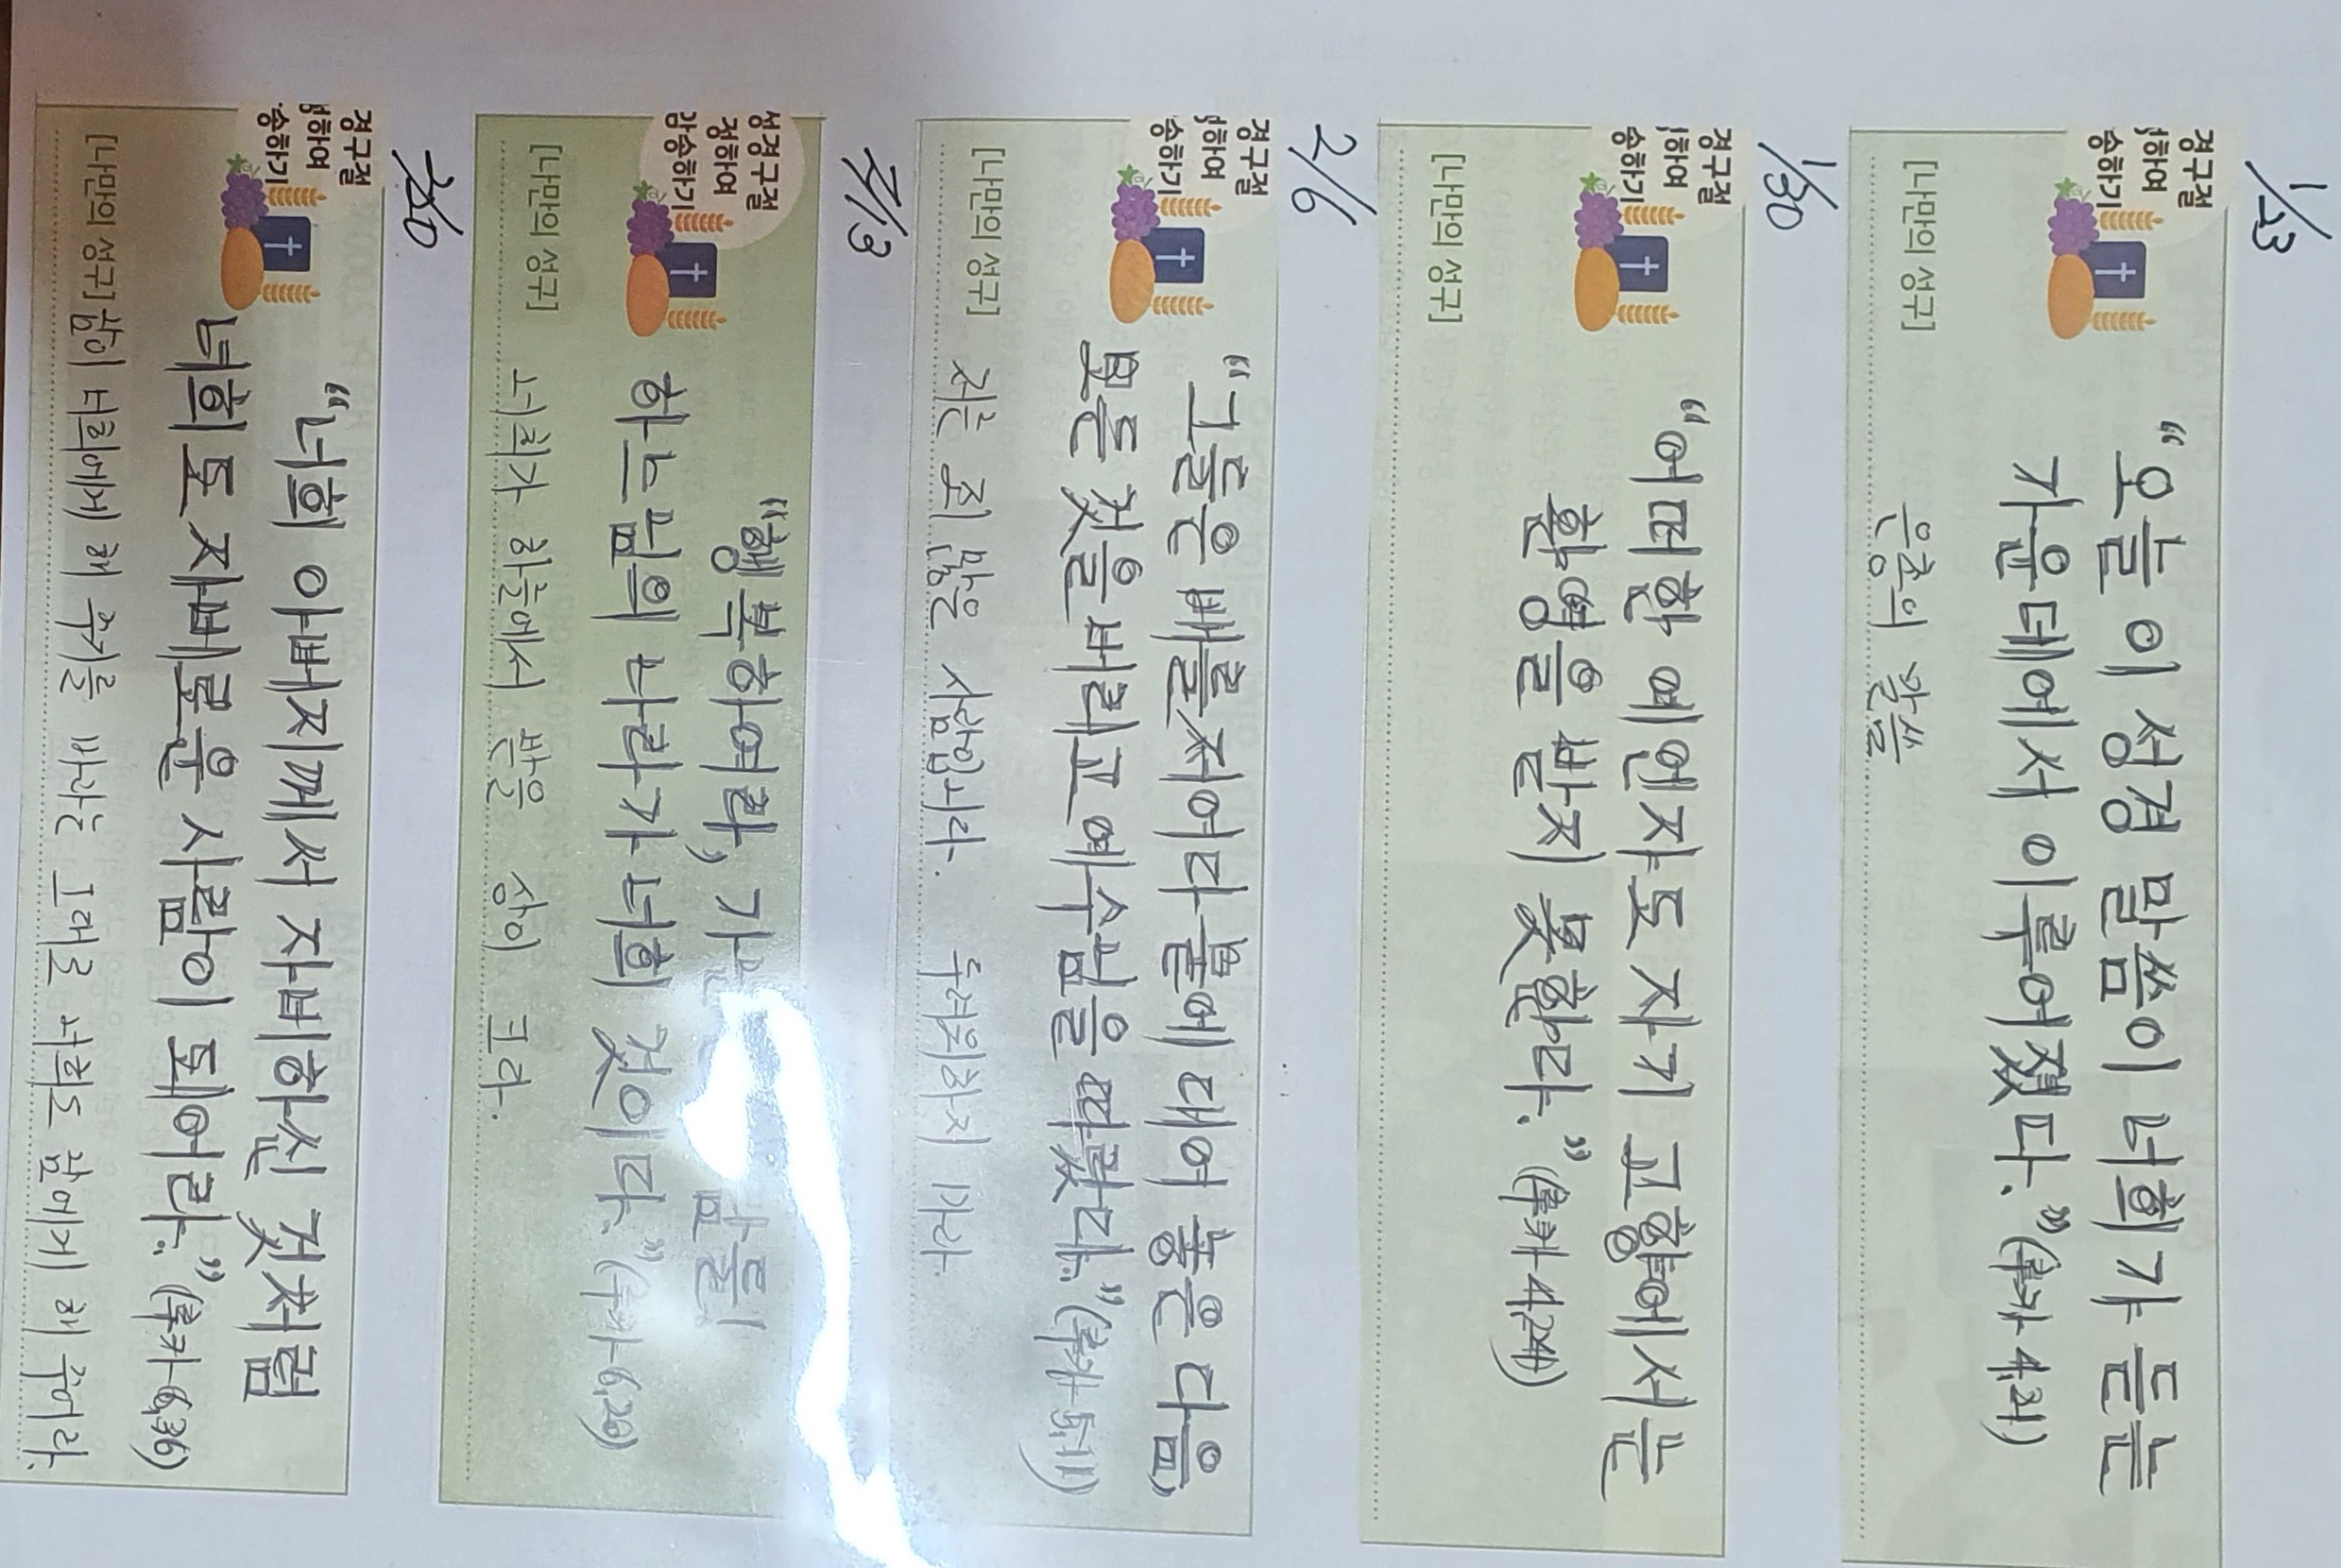 1/23
경구절
하여
송하기
"오늘 이 성경 말씀이 너희가 듣는
가운데에서 이루어졌다."(루카 4,21)
[나만의 성구]
은총의 말씀
1/30
경구절
하여
송하기
"어떠한 예언자도 자기 고향에서는
환영을 받지 못한다."(루카 4,24)
[나만의 성구]
2/6
경구절
하여
송하기
"그들은 배를 저어다 뭍에 대어 놓은 다음,
모든 것을 버리고 예수님을 따랐다."(루카 5,11)
[나만의 성구]
저는 죄 많은 사람입니다. 두려워하지 마라.
2/13
성경구절
정하여
암송하기
"행복하여라, 가난 람들!
하느님의 나라가 너희 것이다."(루카 6,20)
[나만의 성구]
너희가 하늘에서 받을 상이 크다.
2/20
경구절
하여
송하기
"너희 아버지께서 자비하신 것처럼
너희도 자비로운 사람이 되어라."(루카 6,36)
[나만의 성구] 남이 너희에게 해 주기를 바라는 그대로 너희도 남에게 해 주어라.